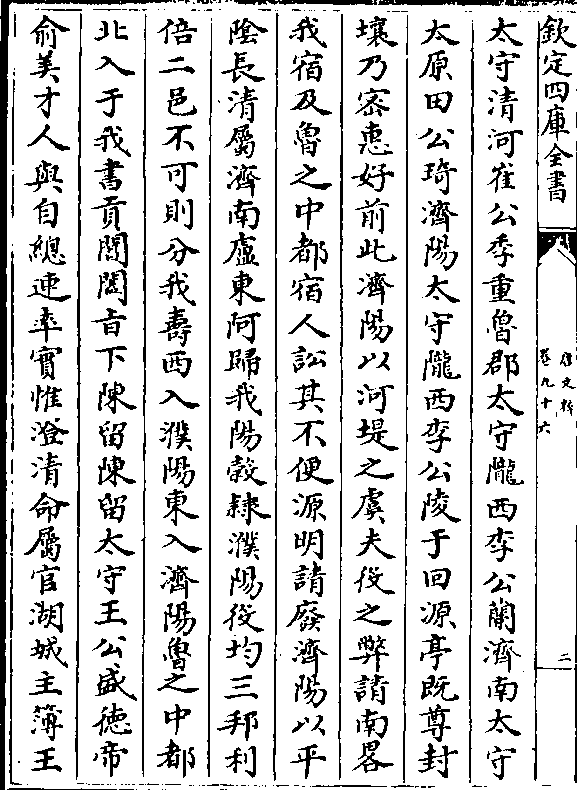 欽定四庫全書
唐文粹
卷九十六
二
太守清河崔公季重魯郡太守隴西李公蘭濟南太守
太原田公琦濟陽太守隴西李公陵于回源亭既尊封
壤乃密惠好前此濟陽以河堤之虞夫役之弊請南畧
我宿及魯之中都宿人訟其不便源明請廢濟陽以平
陰長清屬濟南盧東阿歸我陽榖隸濮陽役均三邦利
倍二邑不可則分我壽西入濮陽東入濟陽魯之中都
北入于我書貢闕闔㫖下陳留陳留太守王公盛徳帝
俞美才人與自總連率實惟澄清命屬官湖城主簿王